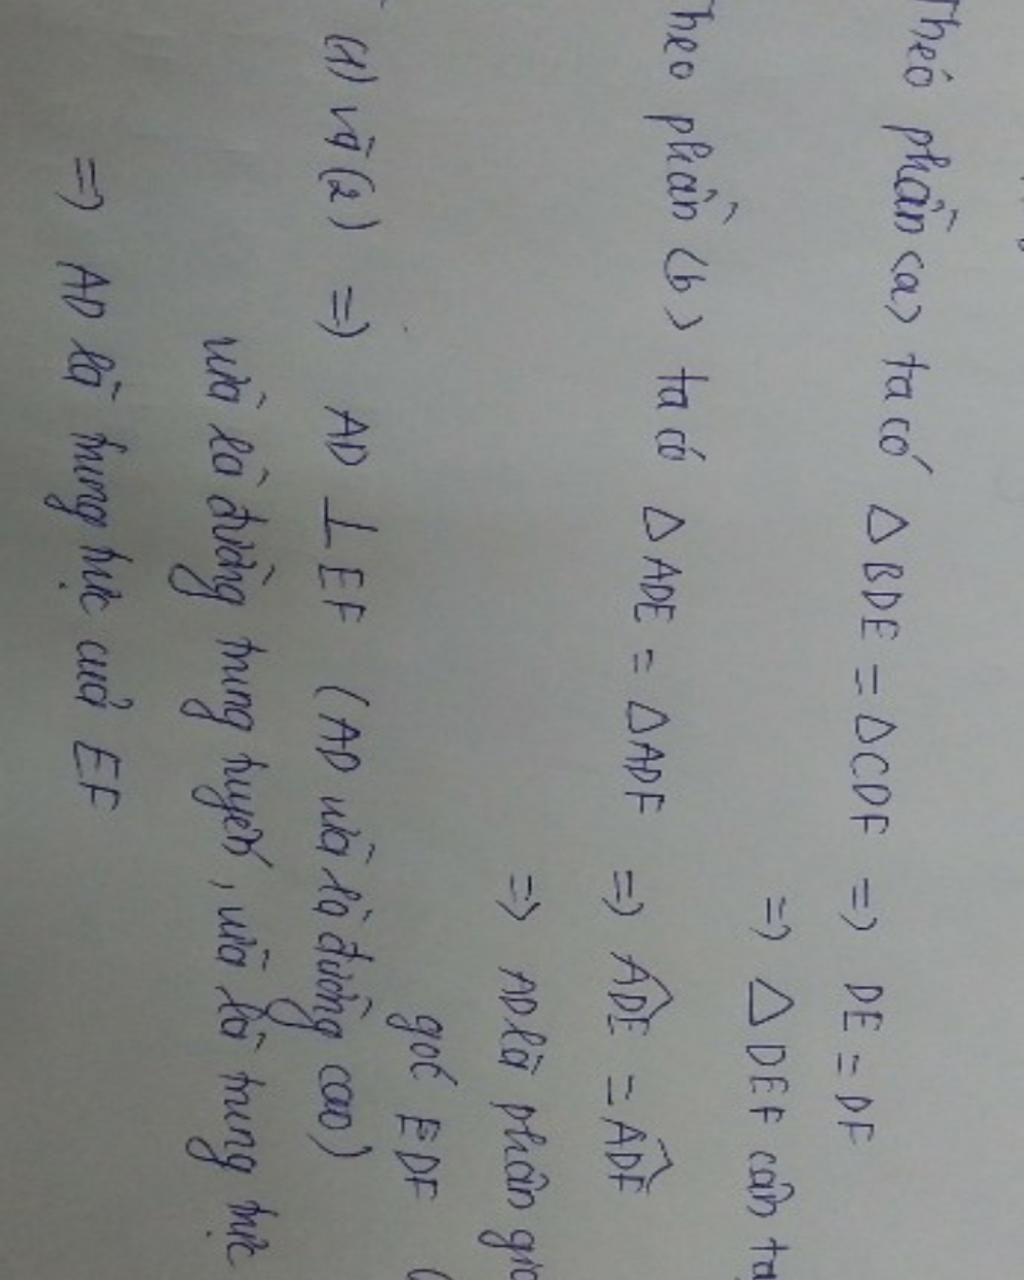 Theo phần (a) ta có △BDE = △CDF => DE = DF
=> △DEF cân tạ
Theo phần (b) ta có △ADE = △ADF => ADE = ADF
=> AD là phân giá
góc EDF (
(1) và (2) => AD ⊥ EF (AD vừa là đường cao)
vừa là đường trung tuyến, vừa là trung trực
=> AD là trung trực của EF